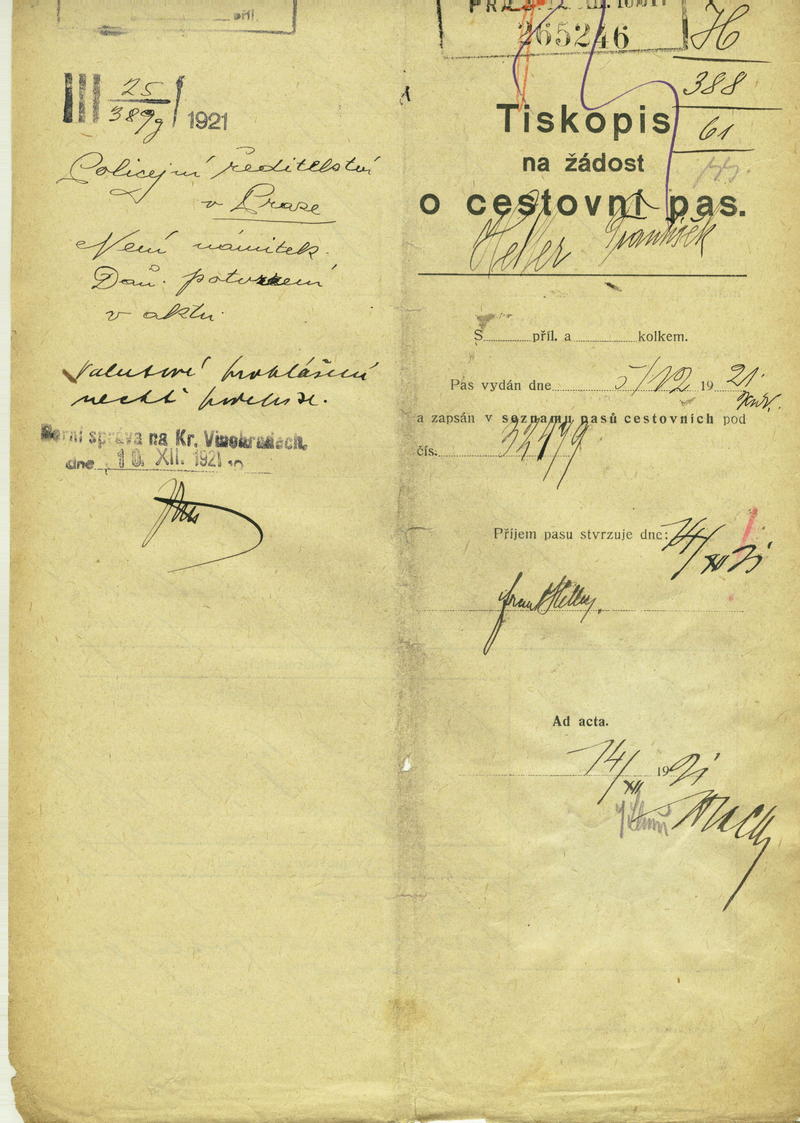 příl.
III 25/389g 1921
Policejní ředitelství
v Praze
Není námitek.
Daň. potvrzení
v aktu.
Valutové prohlášení
nechť
Berní správa na Kr. Vinohradech,
dne 10. XII. 1921
265246
H
388
61
Tiskopis
na žádost
o cestovní pas.
Heller František
S příl. a kolkem.
Pas vydán dne 5/12 1921.
a zapsán v seznamu pasů cestovních pod
čís. 32479
Příjem pasu stvrzuje dne: 14/XII 21
Frant Heller.
Ad acta.
14/XII 1921